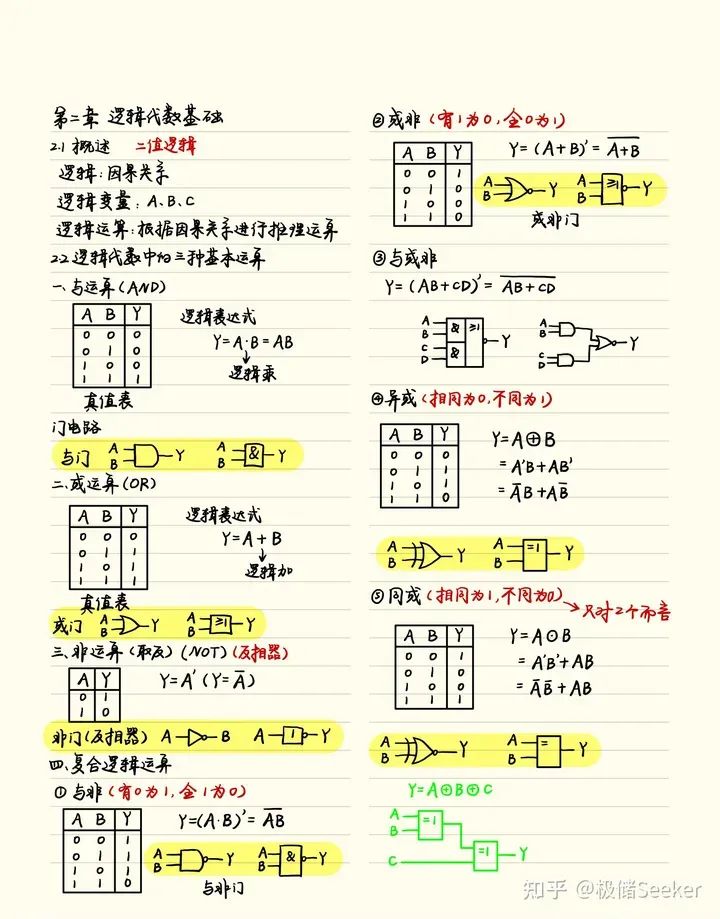 第二章 逻辑代数基础
2.1 概述 二值逻辑
逻辑：因果关系
逻辑变量：A、B、C
逻辑运算：根据因果关系进行推理运算
2.2 逻辑代数中的三种基本运算
一、与运算(AND)
A B Y
0 0 0
0 1 0
1 0 0
1 1 1
真值表
逻辑表达式
Y=A·B=AB
逻辑乘
门电路
与门 A B Y A B & Y
二、或运算(OR)
A B Y
0 0 0
0 1 1
1 0 1
1 1 1
真值表
逻辑表达式
Y=A+B
逻辑加
或门 A B Y A B ≥1 Y
三、非运算(取反)(NOT)(反相器)
A Y
0 1
1 0
Y=A′(Y=A̅)
非门(反相器) A B A 1 Y
四、复合逻辑运算
①与非(有0为1,全1为0)
A B Y
0 0 1
0 1 1
1 0 1
1 1 0
Y=(A·B)′=A̅B̅
A B Y A B & Y
与非门
②或非(有1为0,全0为1)
A B Y
0 0 1
0 1 0
1 0 0
1 1 0
Y=(A+B)′=A̅+̅B̅
A B Y A B ≥1 Y
或非门
③与或非
Y=(AB+CD)′=A̅B̅+̅C̅D̅
A B C D & & ≥1 Y A B C D Y
④异或(相同为0,不同为1)
A B Y
0 0 0
0 1 1
1 0 1
1 1 0
Y=A⊕B
=A′B+AB′
=A̅B+AB̅
A B Y A B =1 Y
⑤同或(相同为1,不同为0)
只对2个而言
A B Y
0 0 1
0 1 0
1 0 0
1 1 1
Y=A⊙B
=A′B′+AB
=A̅ B̅+AB
A B Y A B = Y
Y=A⊕B⊕C
A B =1
C =1 Y
知乎 @极储Seeker